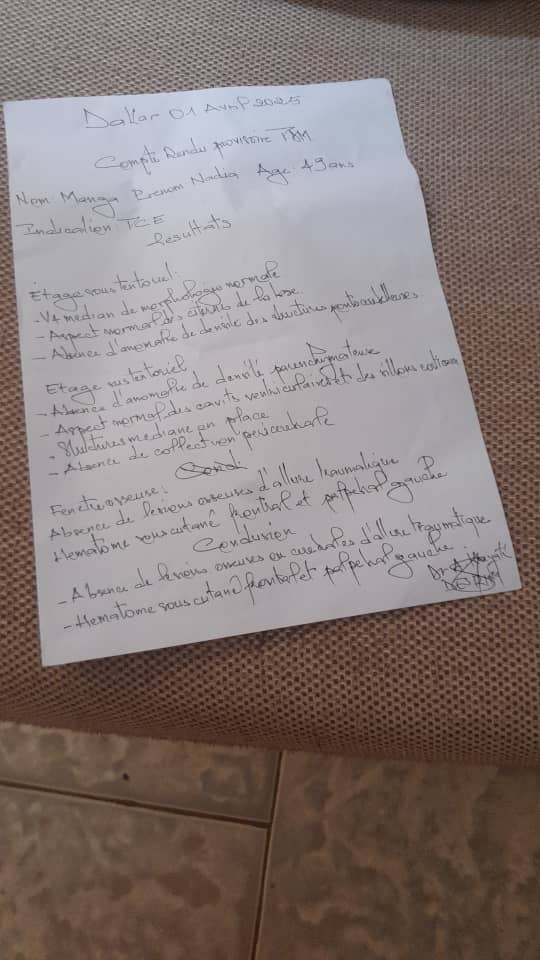 Dakar 01 Avril 2025
Compte Rendu provisoire TDM
Nom Manga Prenom Nadia Age 49 ans
Indication TCE
Résultats
Etage sous tentoriel:
- V4 median de morphologie normale
- Aspect normal des citernes de la base
- Absence d'anomalie de densité des structures
Etage sus tentoriel
- Absence d'anomalie de densité parenchymateuse
- Aspect normal des cavités ventriculaires et des sillons corticaux
- Structures mediane en place
- Absence de collection péricerebrale
Fenetre osseuse:
Absence de lesions osseuses d'allure traumatique
Hematome sous cutané frontal et palpebral gauche
Conclusion
- Absence de lesions osseuses ou cerebrales d'allure traumatique
- Hematome sous cutané frontal et palpebral gauche.
Dr